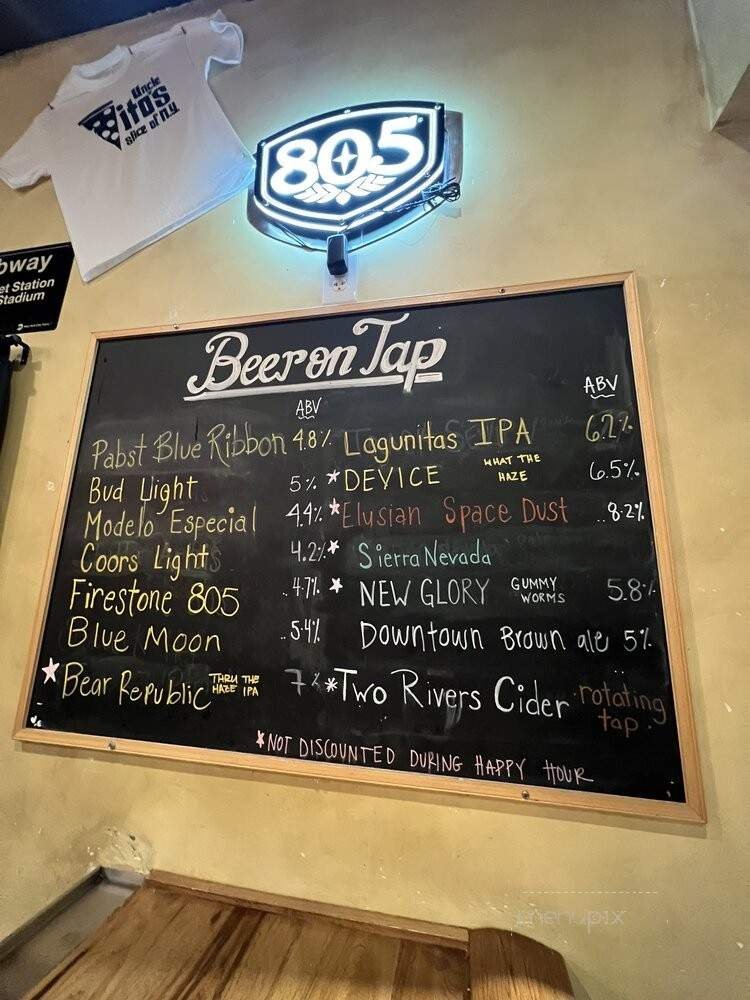 Uncle
Vito's
Slice of N.Y.
805
bway
et Station
Stadium
Beer on Tap
ABV
Pabst Blue Ribbon 4.8%
Bud Light 5%
Modelo Especial 4.4%
Coors Light 4.2%
Firestone 805 ..4.7%
Blue Moon ..5.4%
Bear Republic THRU THE HAZE IPA 7%
ABV
Lagunitas IPA 6.2%
*DEVICE WHAT THE HAZE 6.5%
*Elusian Space Dust ..8.2%
* Sierra Nevada
* NEW GLORY GUMMY WORMS 5.8%
Downtown Brown ale 5%
*Two Rivers Cider rotating tap.
*NOT DISCOUNTED DURING HAPPY HOUR
menupix